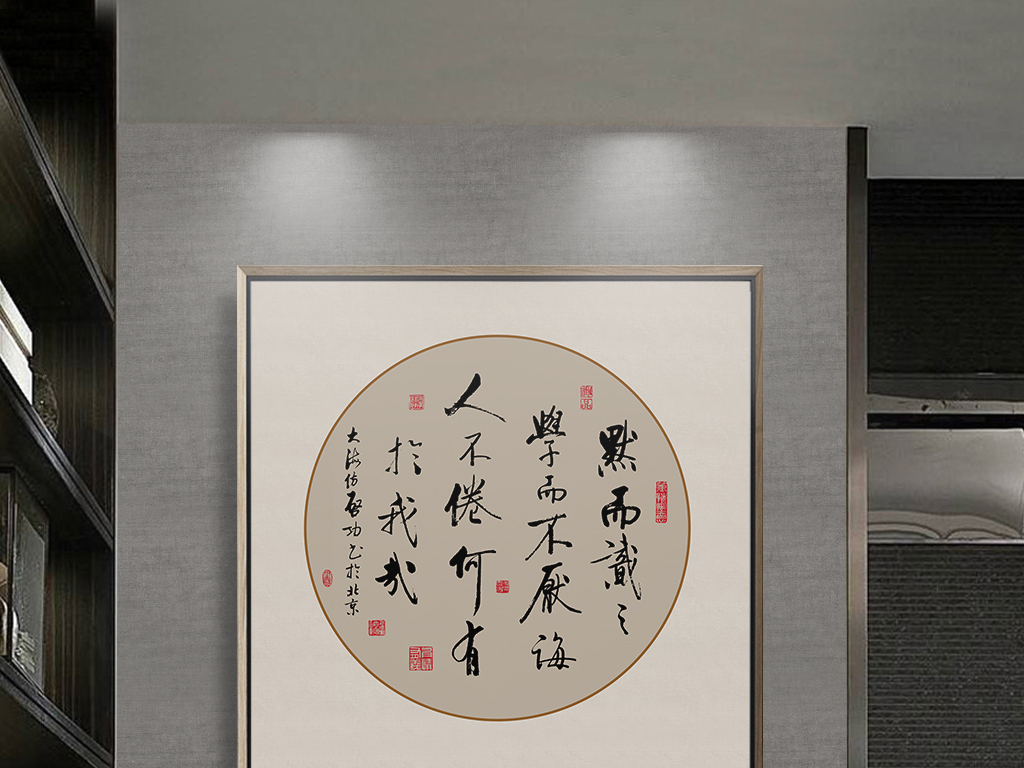 默而識之
學而不厭誨
人不倦何有
於我哉
大海仿啓功書於北京